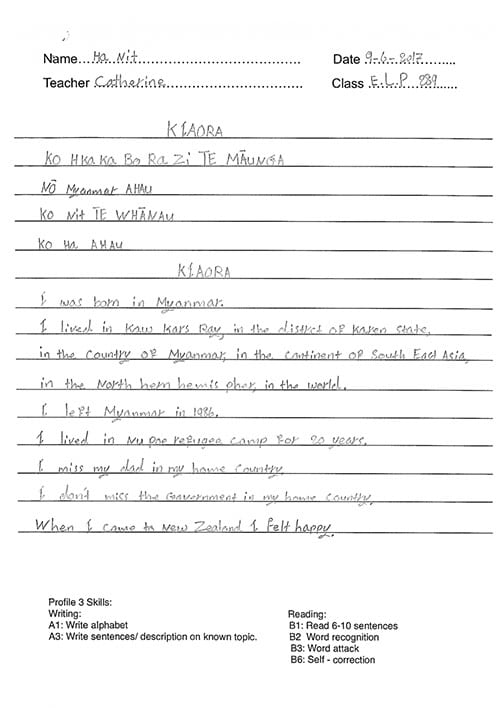 Name...Ha Nit.......................................... Date 9-6-2017........
Teacher Catherine.................................. Class E.L.P 239......
KIAORA
KO HKA KA BO RA ZI TE MĀUNGA
NŌ Myanmar AHAU
KO Nit TE WHĀNAU
KO Ha AHAU
KIAORA
I was born in Myanmar.
I lived in Kaw Kars Ray, in the district of Karen state,
in the country of Myanmar, in the continent of South East Asia,
in the North hern hemis pher, in the world.
I left Myanmar in 1986.
I lived in Nu Poe refugee camp for 20 years.
I miss my dad in my home country.
I don't miss the Government in my home country.
When I came to New Zealand I felt happy.
Profile 3 Skills:
Writing:
A1: Write alphabet
A3: Write sentences/ description on known topic.
Reading:
B1: Read 6-10 sentences
B2 Word recognition
B3: Word attack
B6: Self - correction